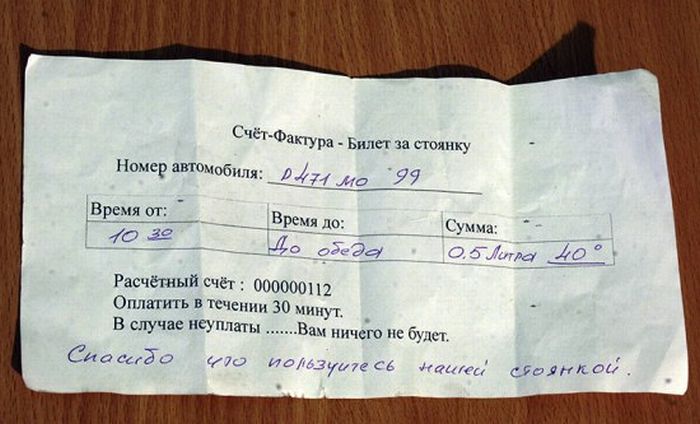 Счёт-Фактура - Билет за стоянку
Номер автомобиля: р471мо 99
Время от: Время до: Сумма:
10 30 До обеда 0.5 Литра 40°
Расчётный счёт : 000000112
Оплатить в течении 30 минут.
В случае неуплаты .......Вам ничего не будет.
Спасибо что пользуитесь нашей стоянкой.